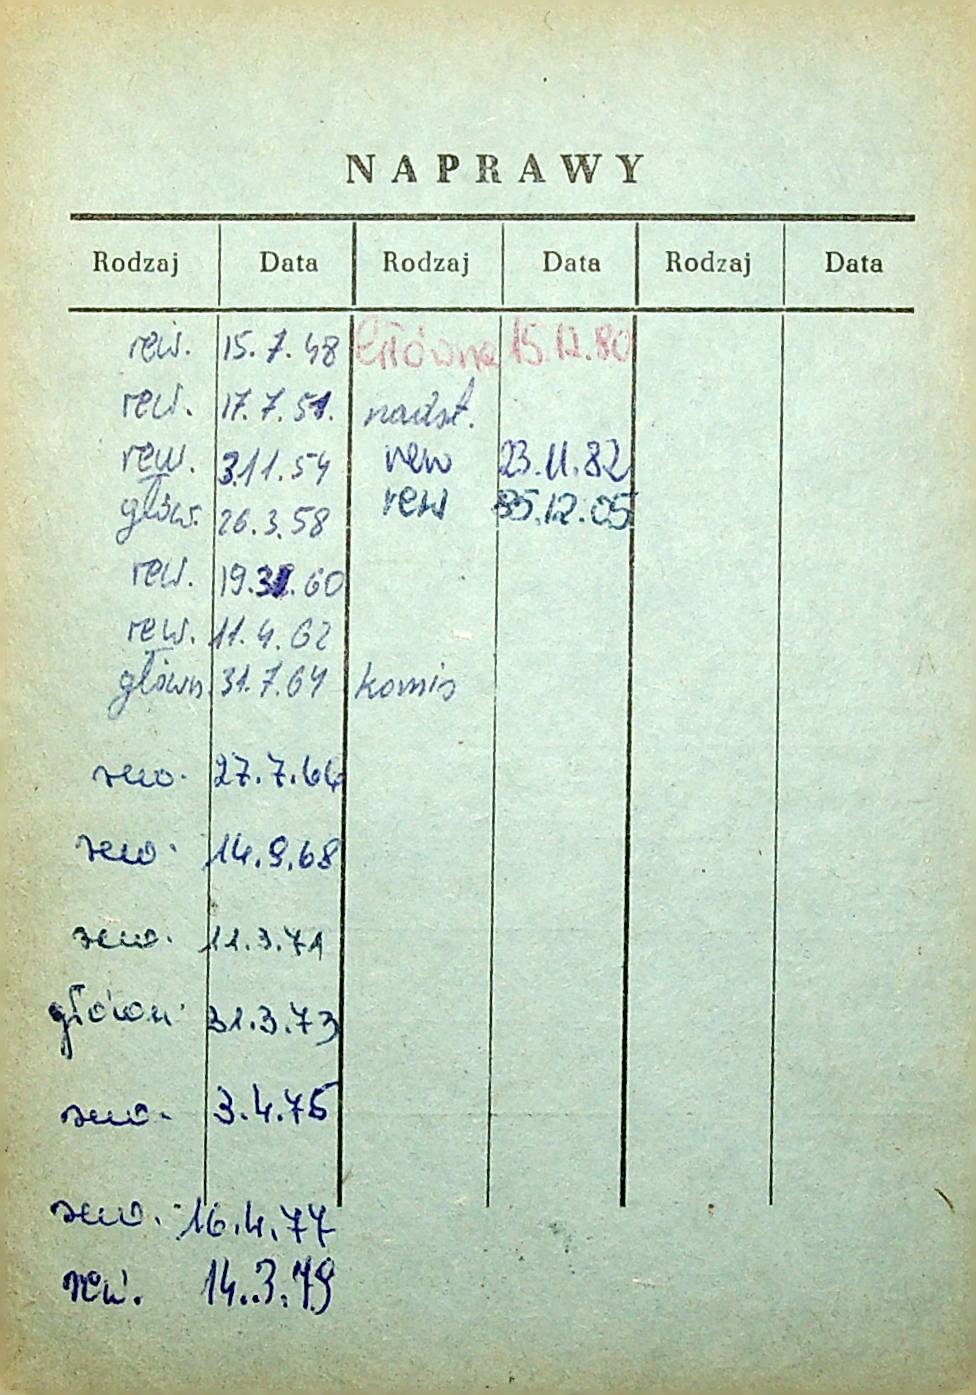 NAPRAWY
Rodzaj Data Rodzaj Data Rodzaj Data
rew. 15.7.48 Główna 15.12.80
rew. 17.7.51. nadst.
rew. 3.11.54 rew 23.11.82
główn. 26.3.58 rew 85.12.05
rew. 19. .60
rew. 11.4.62
główn 31.7.64 komis
rew. 27.7.66
rew. 14.9.68
rew. 11.3.71
główn. 31.3.73
rew. 3.4.75
rew. 16.4.77
rew. 14.3.79